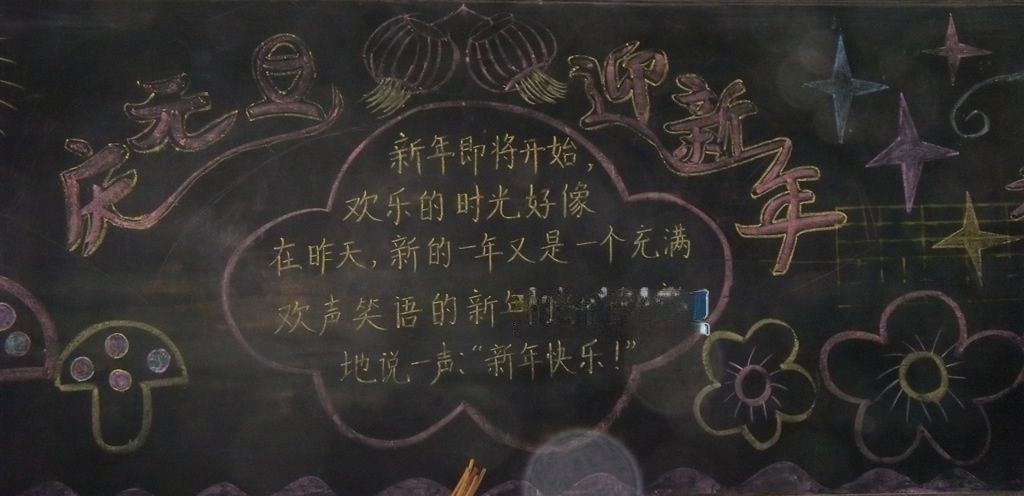 庆元旦 迎新年
新年即将开始,
欢乐的时光好像
在昨天,新的一年又是一个充满
欢声笑语的新年
地说一声:“新年快乐!”